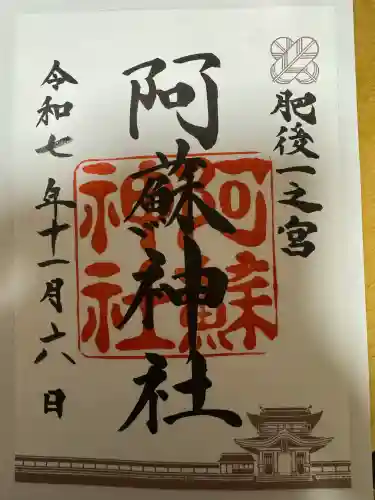 肥後一之宮
阿蘇神社
阿蘇
神社
令和七年十一月六日